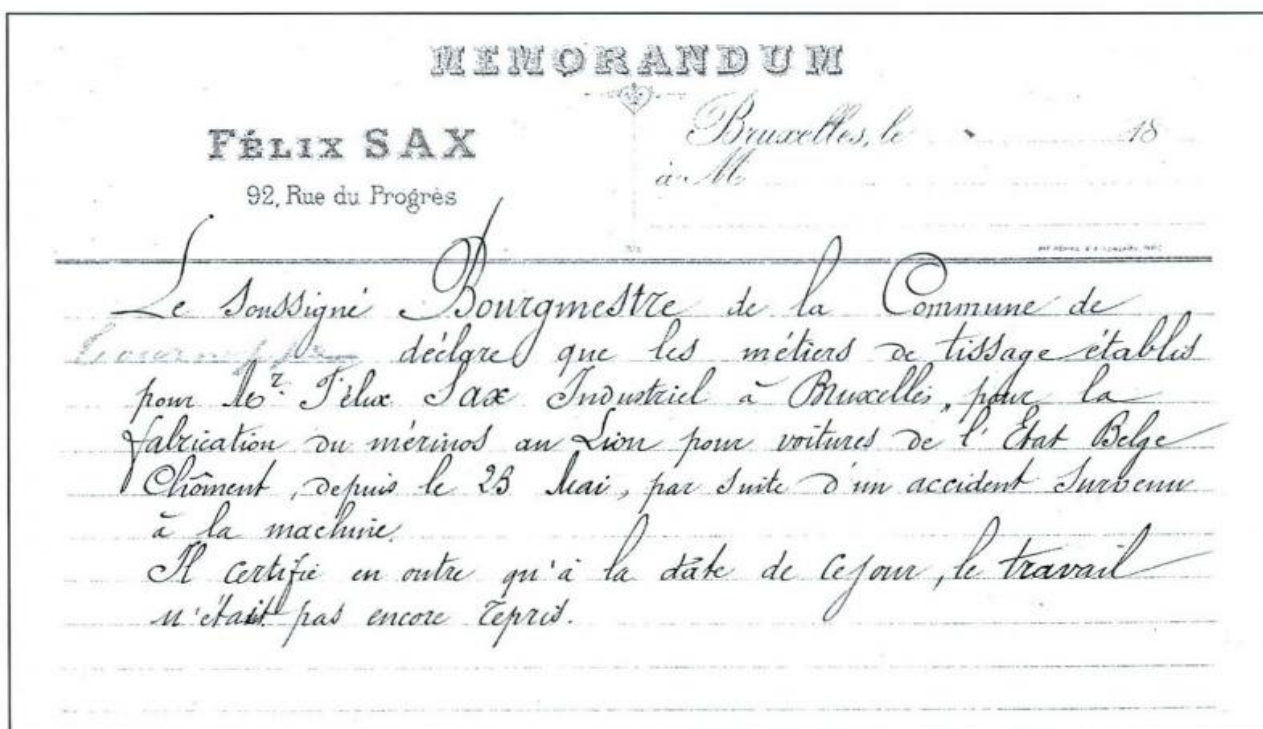 MEMORANDUM
FÉLIX SAX
92, Rue du Progrès
Bruxelles, le 18
à M
Le Soussigné Bourgmestre de la Commune de
déclare que les métiers de tissage établis
pour Mr. Félix Sax Industriel à Bruxelles, pour la
fabrication du mérinos au Lion pour voitures de l'État Belge
Chôment, depuis le 23 Mai, par suite d'un accident Survenu
à la machine.
Il Certifie en outre qu'à la date de Cejour, le travail
n'était pas encore repris.